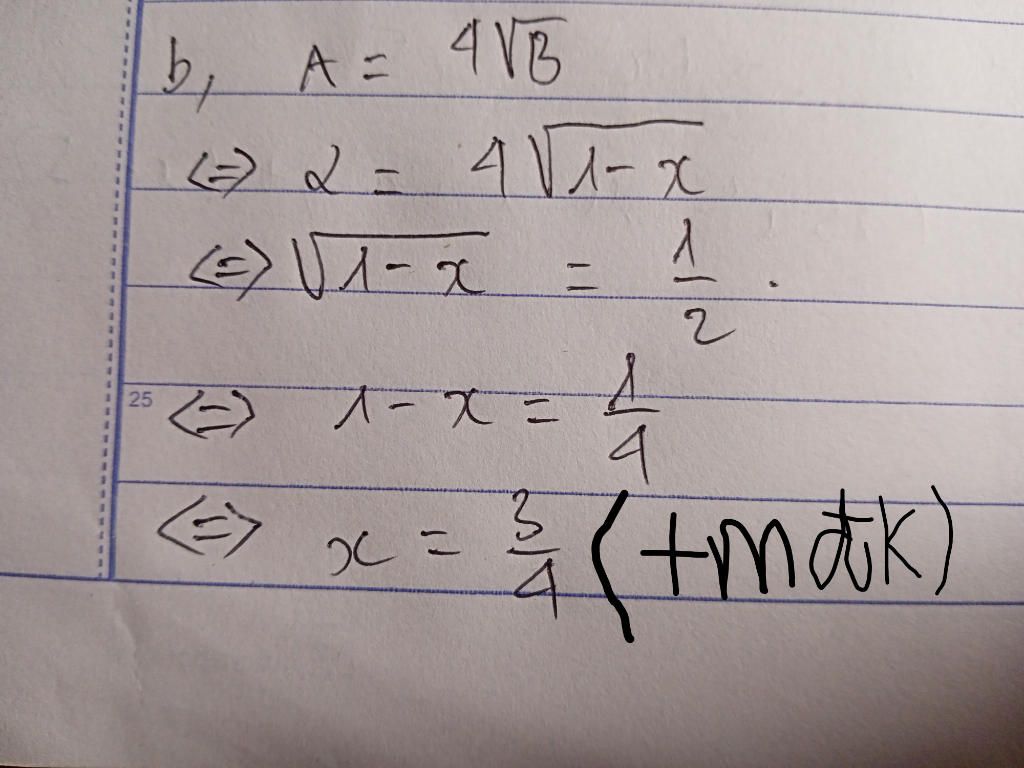 b, A = 4√B
<=> 2 = 4√1-x
<=> √1-x = 1/2 .
25 <=> 1-x = 1/4
<=> x = 3/4 (+mđk)